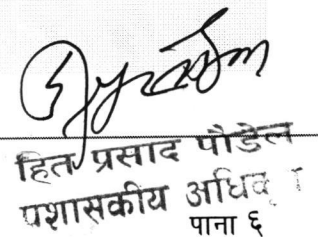 हित प्रसाद पौडेल
प्रशासकीय
पाना ६